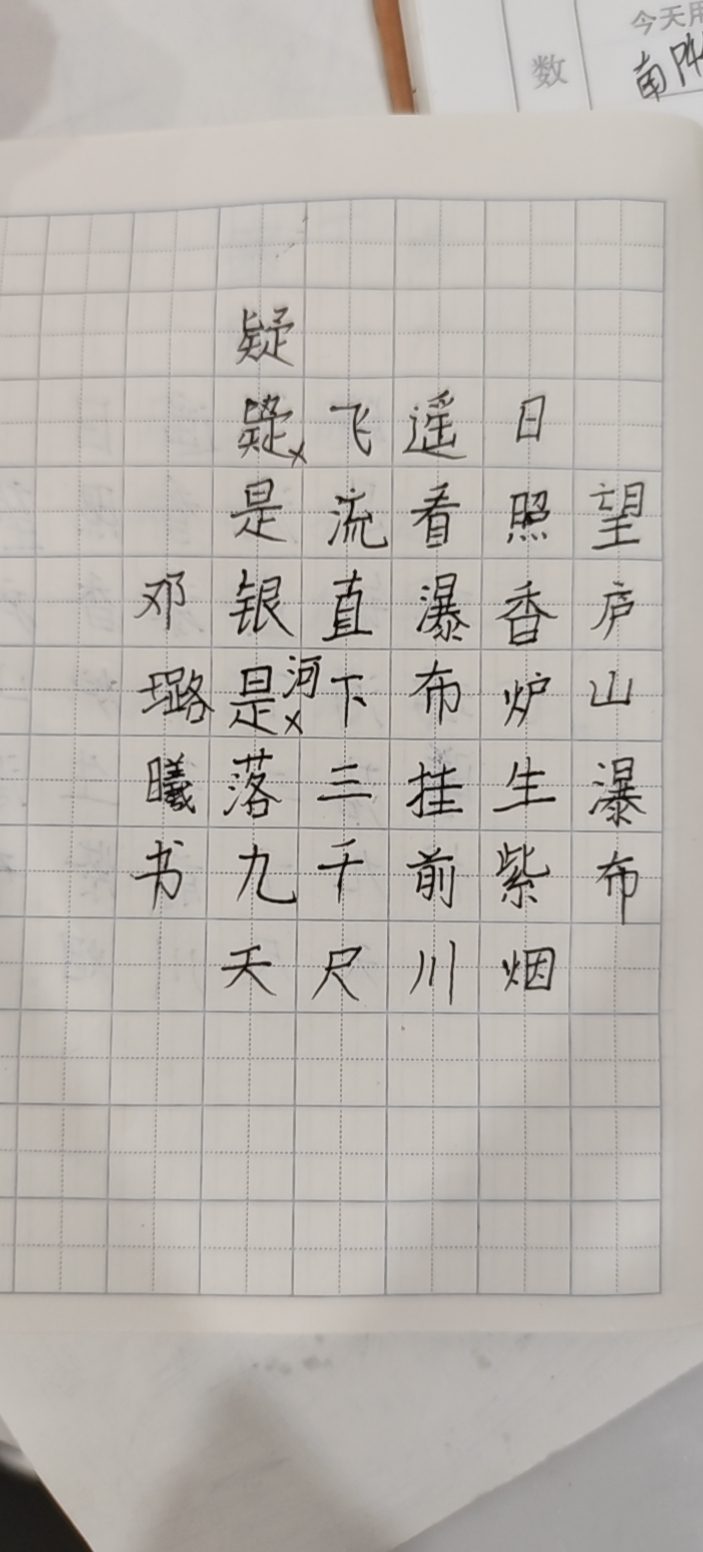 望庐山瀑布
日照香炉生紫烟
遥看瀑布挂前川
飞流直下三千尺
疑疑是银是河落九天
邓璐曦书
今天用
数
南